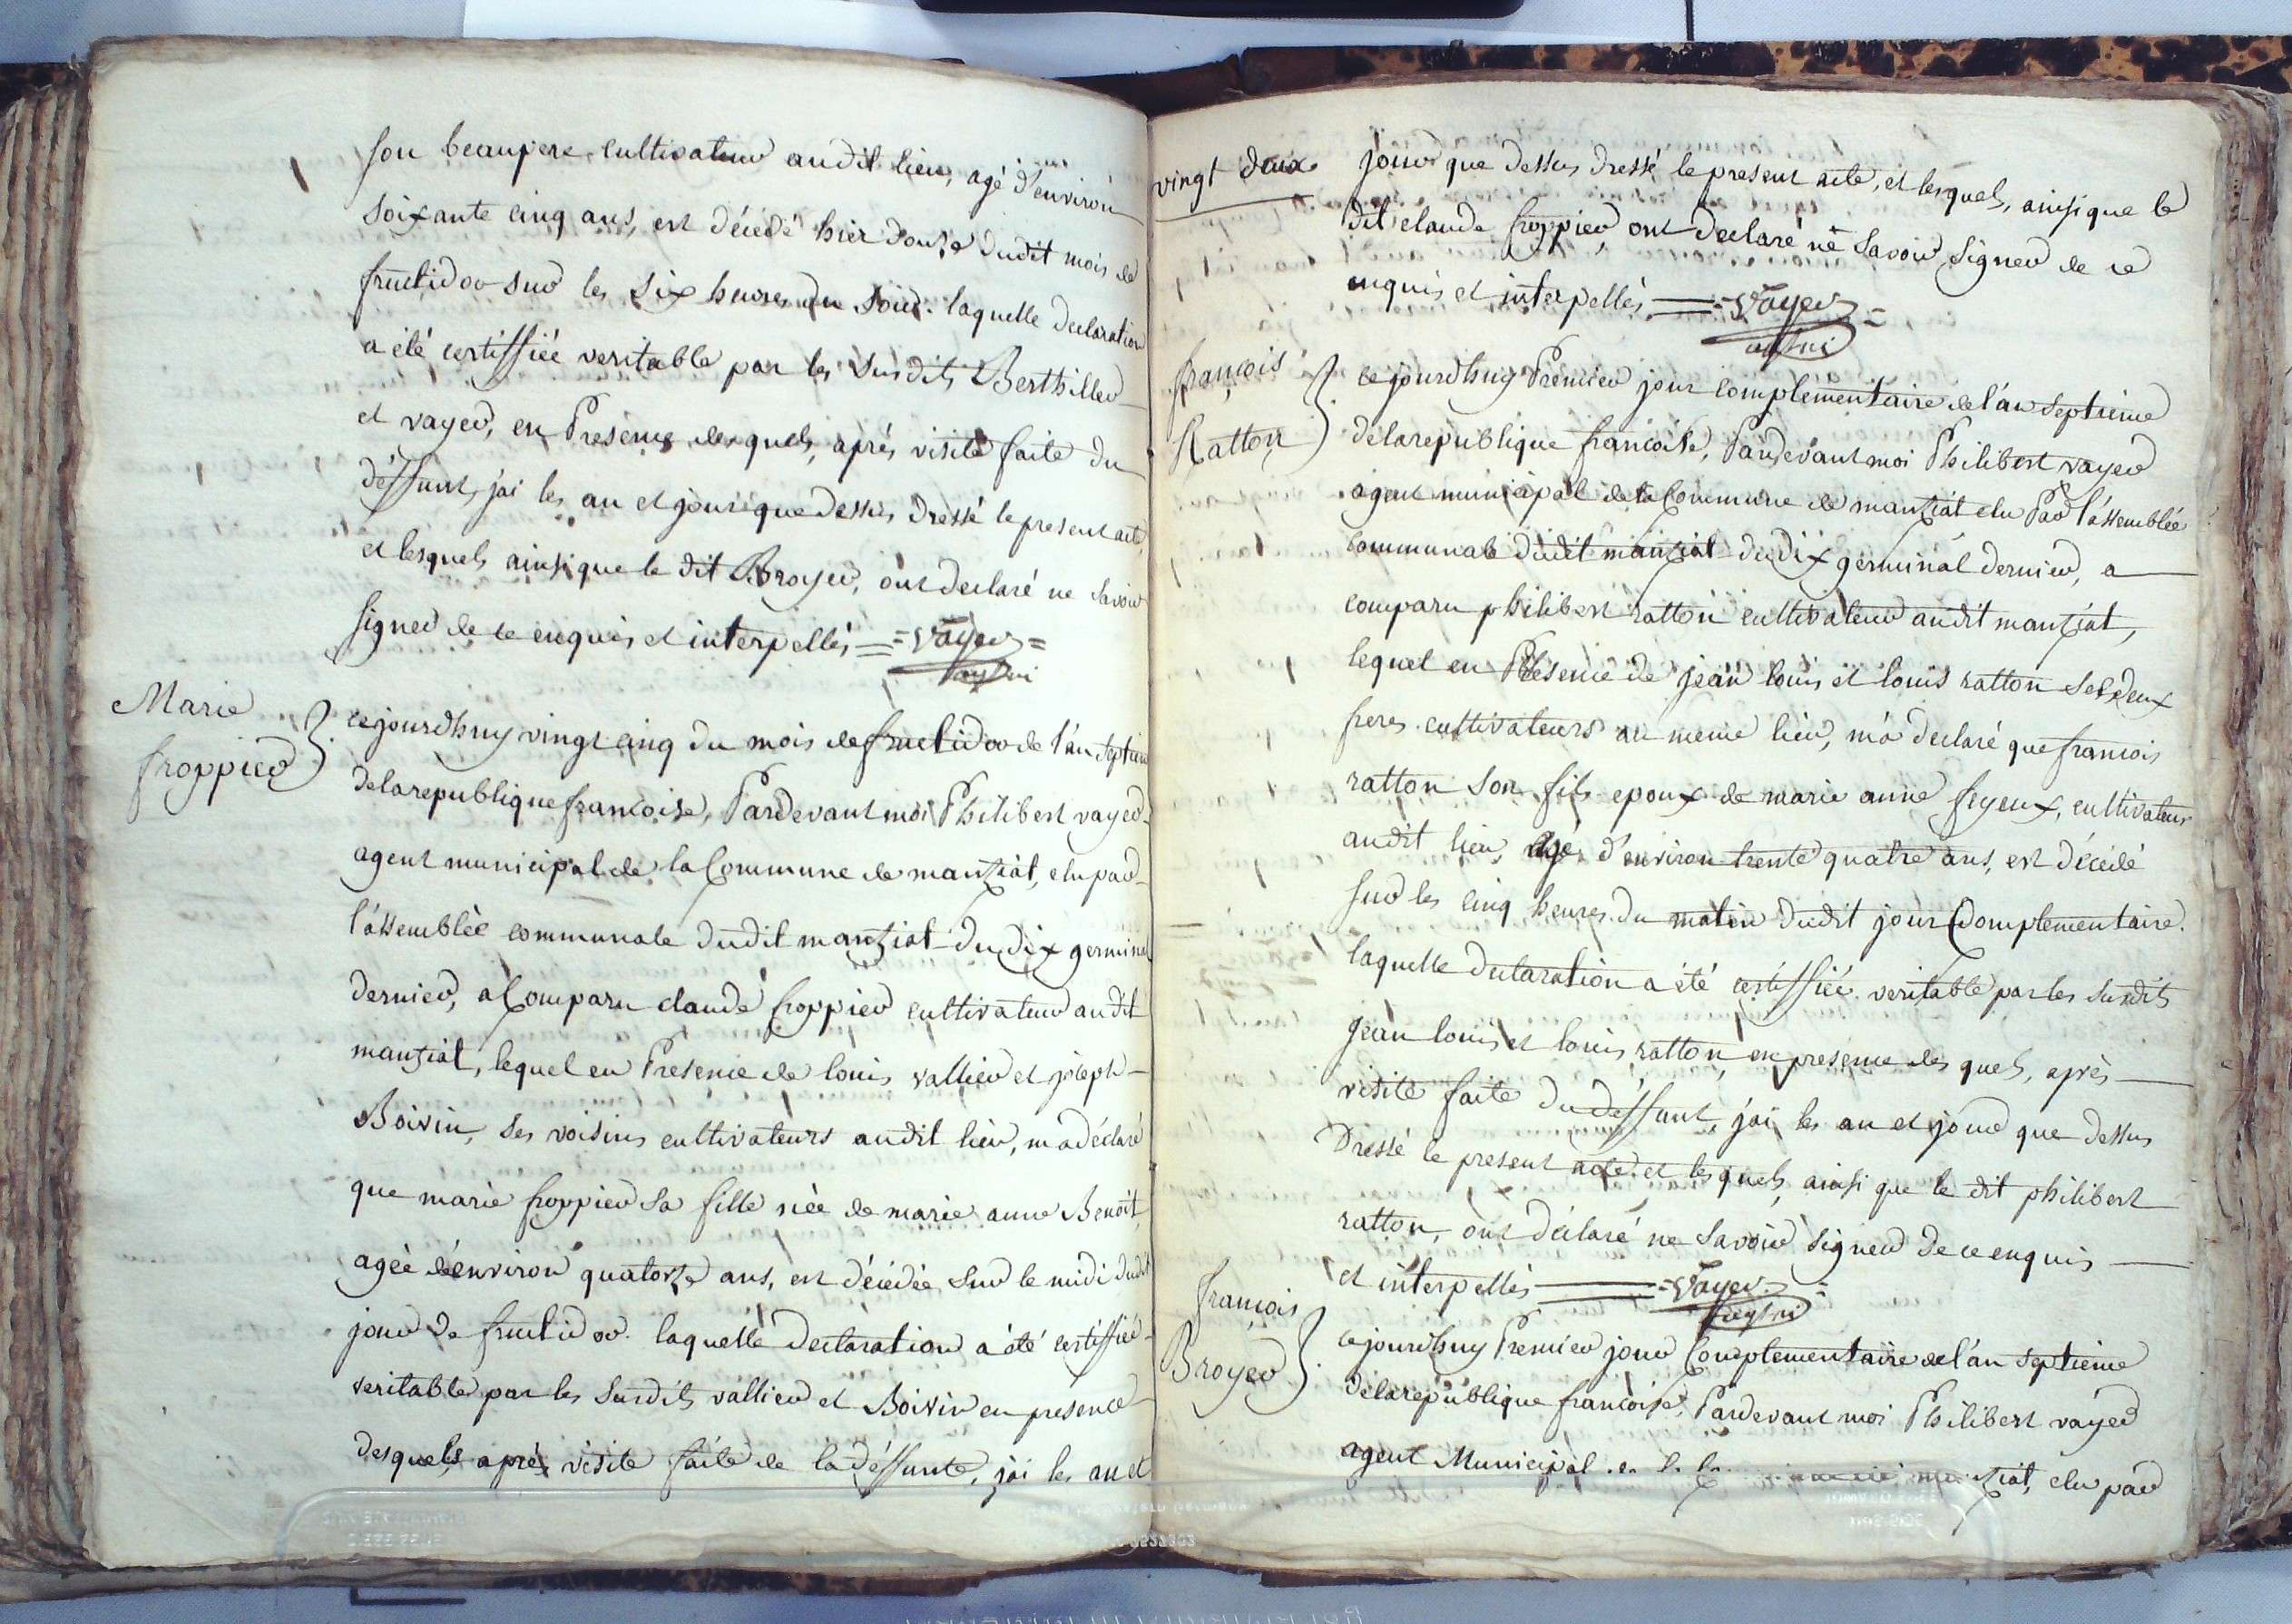 son beaupere, cultivateur audit lieu, agé d'environ
soixante cinq ans, est décédé hier douze dudit mois de
fructidor sur les six heures du soir. laquelle declaration
a été certiffiée veritable par les susdits Berthiller
et vayer, en Presence desquels, après visite faite du
déffunt, j'ai les an et jour que dessus dressé le present acte,
et lesquels ainsi que le dit Broyer, ont declaré ne savoir
signer de ce enquis et interpellés == =Vayer=
Marie
froppier
cejourdhuy vingt cinq du mois de fructidor de l'an septieme
de la republique francoise, Pardevant moi Philibert vayer
agent municipal de la Commune de manziat, elu par
l'assemblée communale dudit manziat du dix germinal
dernier, a Comparu claude froppier cultivateur audit
manziat, lequel en Presence de louis vallier et joseph
Boivin, ses voisins cultivateurs audit lieu, m'a déclaré
que marie froppier sa fille née de marie anne Benoit,
agée d'environ quatorze ans, est décédée sur le midi dudit
jour de fructidor. laquelle declaration a été certiffiée
veritable par les susdits vallier et Boivin en presence
desquels après visite faite de la déffunte, j'ai les an et
vingt deux
jour que dessus dressé le present acte, et lesquels, ainsi que le
dit claude froppier, ont declaré ne savoir signer de ce
enquis et interpellés == =Vayer=
françois
Ratton
cejourdhuy Premier jour complementaire de l'an septieme
de la republique francoise, Pardevant moi Philibert vayer
agent municipal de la Commune de manziat elu Par l'assemblée
communale dudit manziat du dix germinal dernier, a
comparu philibert ratton cultivateur audit manziat,
lequel en Présence de jean louis et louis ratton ses deux
freres cultivateurs au meme lieu, m'a declaré que francois
ratton son fils epoux de marie anne feyeux, cultivateur
audit lieu, agé d'environ trente quatre ans, est décédé
sur les cinq heures du matin dudit jour Complementaire.
laquelle declaration a été certiffiée veritable par les susdits
jean louis et louis ratton, en presence des quels, après
visite faite du déffunt, j'ai les an et jour que dessus
Dressé le present acte. et les quels, ainsi que le dit philibert
ratton, ont déclaré ne savoir signer de ce enquis
et interpellés == =Vayer=
françois
Broyer
cejourdhuy Premier jour Complementaire de l'an septieme
de la republique francoise, Pardevant moi Philibert vayer
agent Municipal de la manziat, elu par